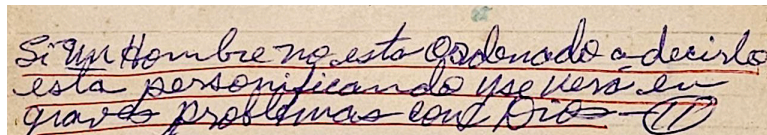 Si un Hombre no esta Ordenado a decirlo
esta personificando y se verá en
graves problemas con Dios - (11)